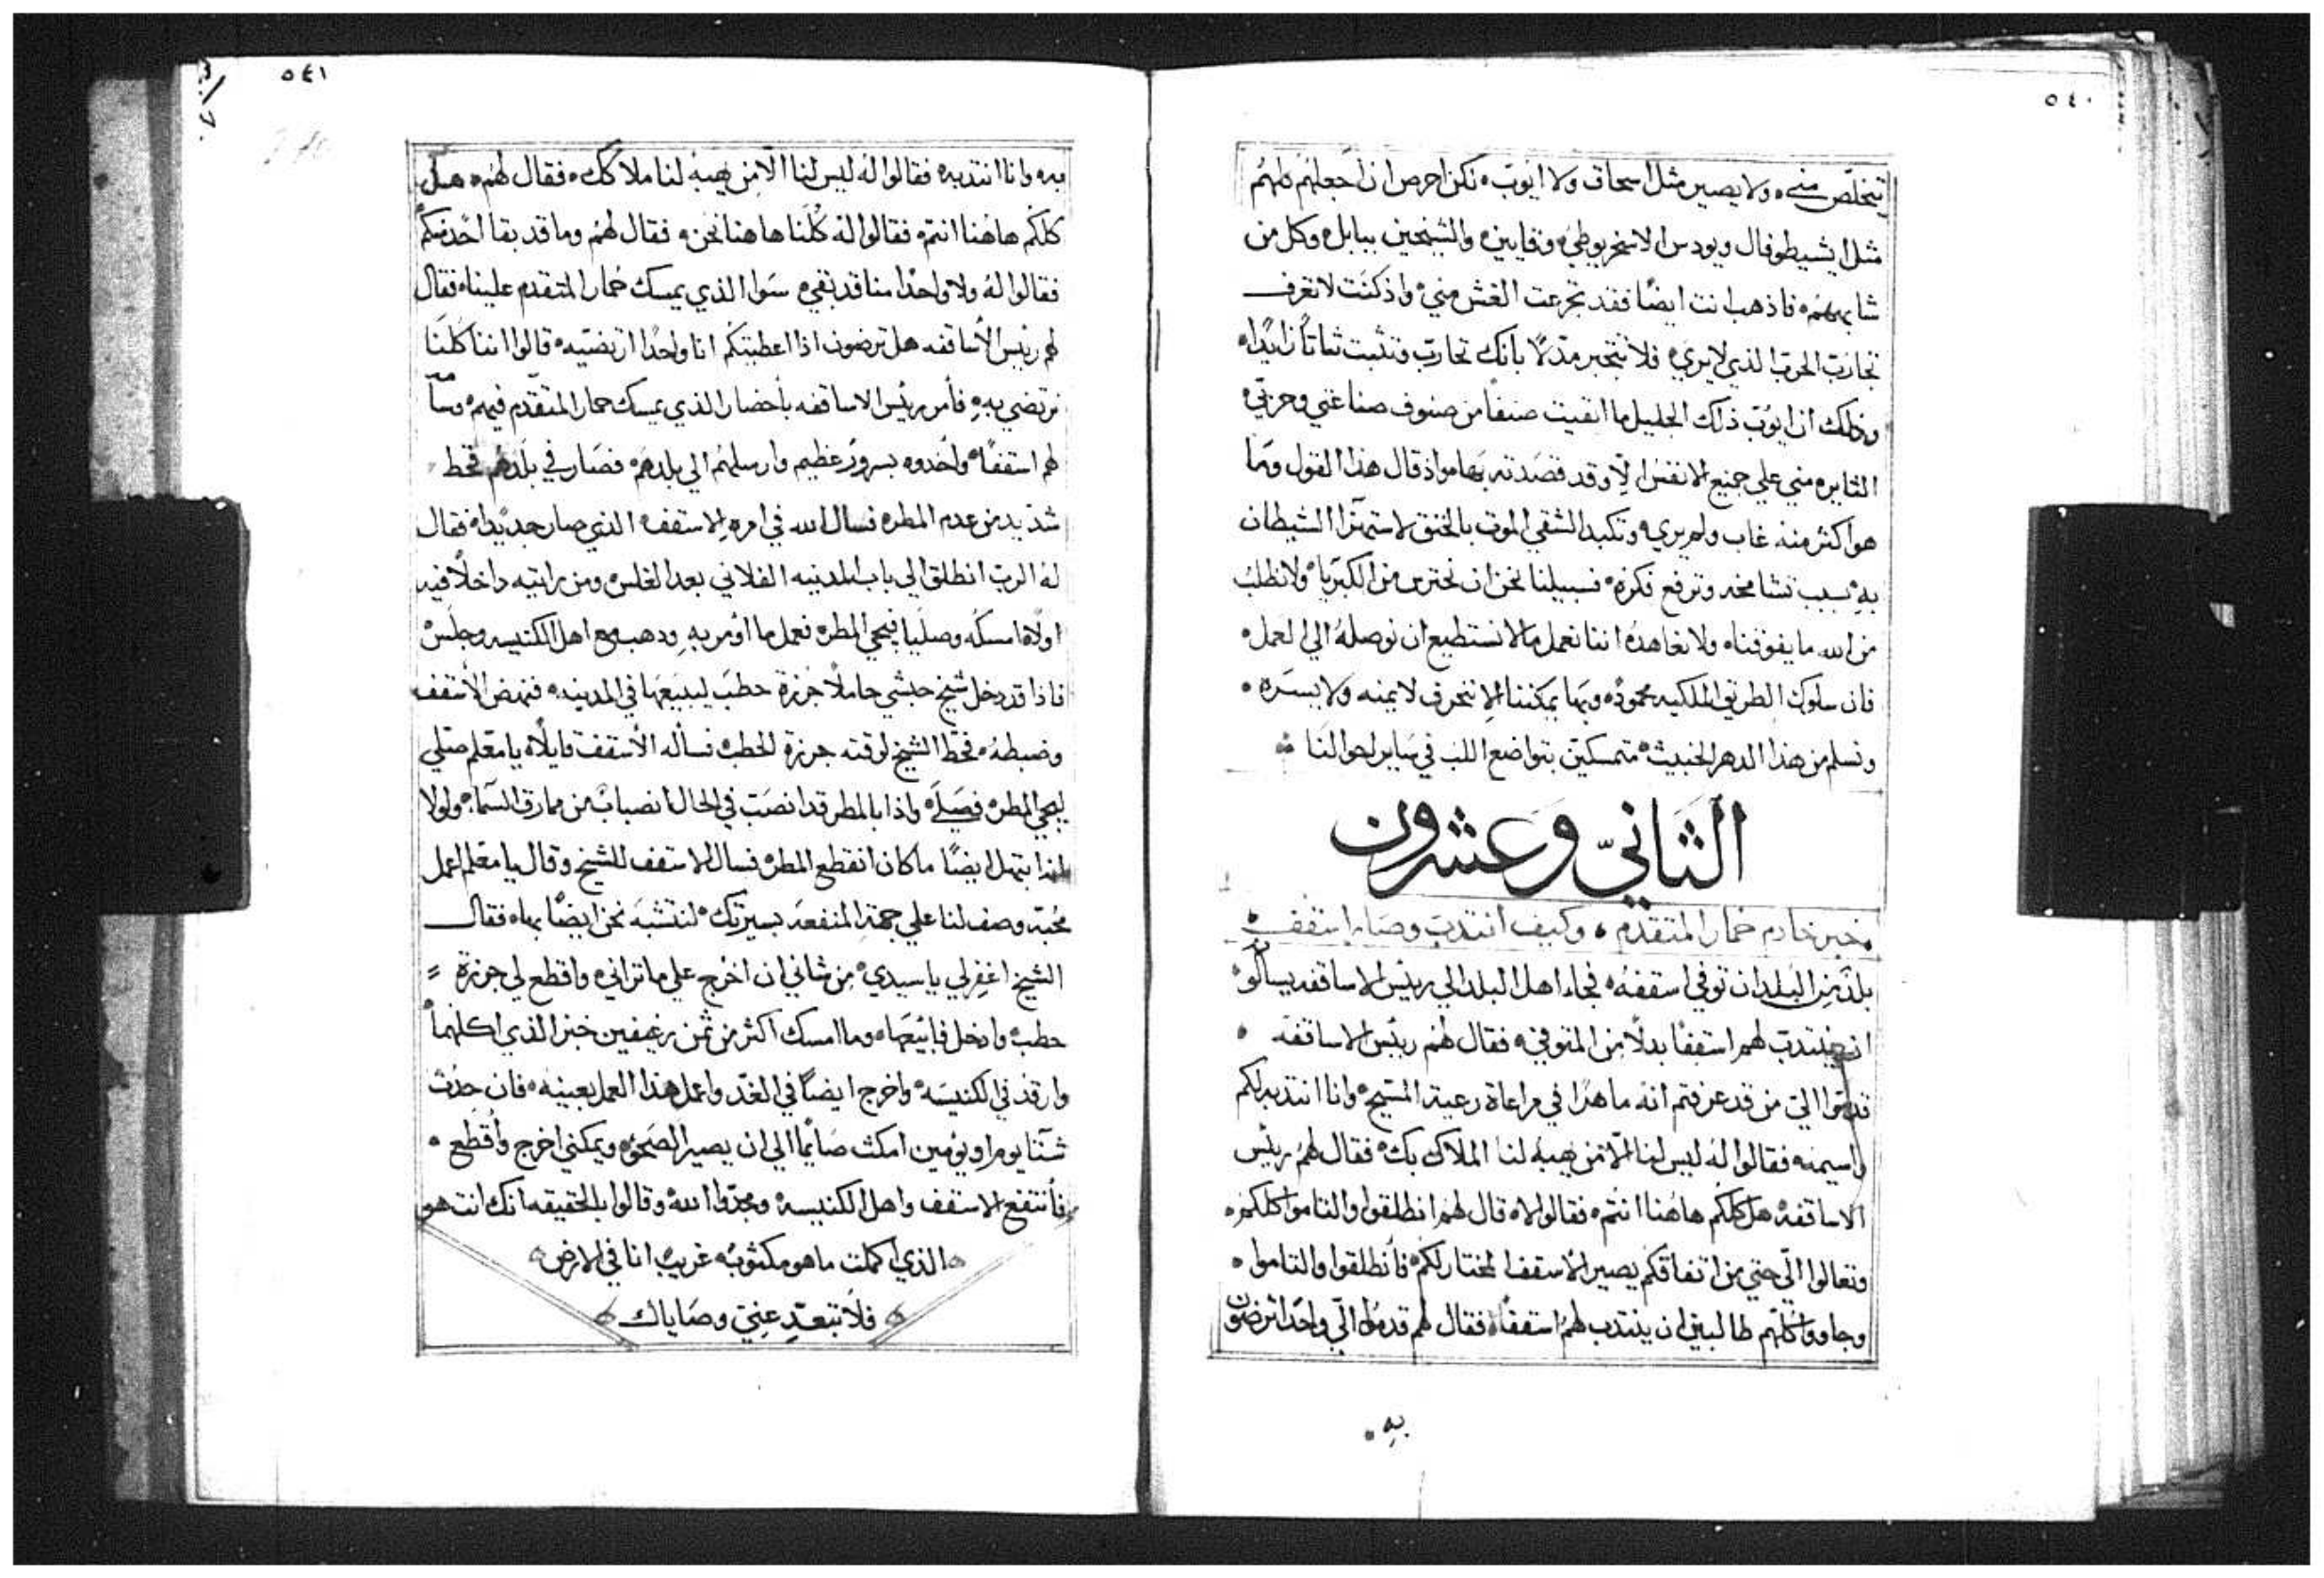 ٥٤٠
يتخلص مني، ولا يصير مثل اسحاق ولا ايوب، لكن احرص ان اجعلهم كلهم
مثل ايشيطوفال ويودس الاسخريوطي، وقايين، والشيخين ببابل، وكل من
شابههم، فاذهب انت ايضًا فقد تجرعت الغش مني، واذ كنت لا تعرف
تحارب الحرب الذي لا يرى، فلا تتجبر مدلًا بانك تحارب وتثبت ثباتًا زايدًا،
وذلك ان ايوب ذلك الجليل ما ابقيت صنفًا من صنوف صناعتي وحربي،
الثايره مني علي جميع الانفس الا وقد قصدته بها، واذ قال هذا القول وما
هو اكثر منه غاب ولم يرى، وتكبد الشقي الموت بالخنق لاستهزا الشيطان
به، بسبب تشامخه وترفع فكره، فسبيلنا نحن ان نحترس من الكبريا، ولا نطلب
من الله ما يفوقنا، ولا نعاهده اننا نعمل ما لا نستطيع ان نوصله الي العمل،
فان سلوك الطريق الملكيه محموده، وبها يمكننا الا ننحرف لا يمنه ولا يسره،
ونسلم من هذا الدهر الخبيث، متمسكين بتواضع اللب في ساير احوالنا
الثاني وعشرون
خبر خادم حمار المتقدم، وكيف انتدب وصار اسقف
بلد من البلدان توفي اسقفه، فجاء اهل البلد الي رييس الاساقفه يسالو
ان ينتدب لهم اسقفًا بدلًا من المتوفي، فقال لهم رييس الاساقفه
قدموا الي من قد عرفتم انه ماهرًا في مراعاة رعية المسيح، وانا انتدبه لكم
واسيمه، فقالوا له ليس لنا الا من يهبه لنا الملاك بك، فقال لهم رييس
الاساقفه، هل كلكم هاهنا انتم، فقالوا لا، قال لهم انطلقوا والتاموا كلكم،
وتعالوا الي حتي من اتفاقكم يصير الاسقف المختار لكم، فأنطلقوا والتاموا
وجاووا كلهم طالبين ان ينتدب لهم اسقفًا، فقال لهم قدموا الي واحدًا ترضون
به
٥٤١
به، وانا انتدبه، فقالوا له ليس لنا الا من يهبه لنا ملاكك، فقال لهم، هل
كلكم هاهنا انتم، فقالوا له كلنا هاهنا نحن، فقال لهم وما قد بقا احد منكم
فقالوا له ولا واحدًا منا قد بقي، سوا الذي يمسك حمار المتقدم علينا، فقال
لهم رييس الأساقفه هل ترضون اذا اعطيتكم انا واحدًا ارتضيته، قالوا اننا كلنا
نرتضي به، فأمر رييس الاساقفه بأحضار الذي يمسك حمار المتقدم فيهم، وسا
لهم اسقفًا، واخدوه بسرور عظيم وارسلهم الي بلدهم، فصار في بلدهم قحط
شديد من عدم المطر، فسال الله في امره الاسقف الذي صار جديدًا، فقال
له الرب انطلق الي باب المدينه الفلاني بعد الغلس، ومن رايته داخلًا فيه
اولًا، امسكه وصليا فيجي المطر، فعمل ما اومر به، ودهب مع اهل الكنيسه وجلس
فاذا قد دخل شيخ حبشي حاملًا جرزة حطب ليبيعها في المدينه، فنهض الأسقف
وضبطه، فحط الشيخ لوقته جرزة الحطب، فسأله الأسقف قايلًا، يا معلم صلي
ليجي المطر، فصلي، واذا بالمطر قد انصب في الحال انصبابًا من ممارق السماء، ولولا
انه ابتهل ايضًا ما كان انقطع المطر، فسال الاسقف للشيخ وقال يا معلم اعمل
محبه، وصف لنا علي جهة المنفعه بسيرتك، لنتشبه نحن ايضًا بها، فقال
الشيخ اغفر لي يا سيدي، من شاني ان اخرج علي ما تراني، واقطع لي جرزة
حطب، وادخل فابيعها، وما امسك اكثر من ثمن رغيفين خبز الذي اكلهما
وارقد في الكنيسه، واخرج ايضًا في الغد واعمل هذا العمل بعينه، فان حدث
شتا يوم او يومين امكث صايمًا الي ان يصير الصحو، ويمكني اخرج واقطع
فأنتفع الاسقف واهل الكنيسه، ومجدوا الله وقالوا بالحقيقه انك انت هو
الذي كملت ما هو مكتوب، غريب انا في الارض
فلا تبعد عني وصاياك